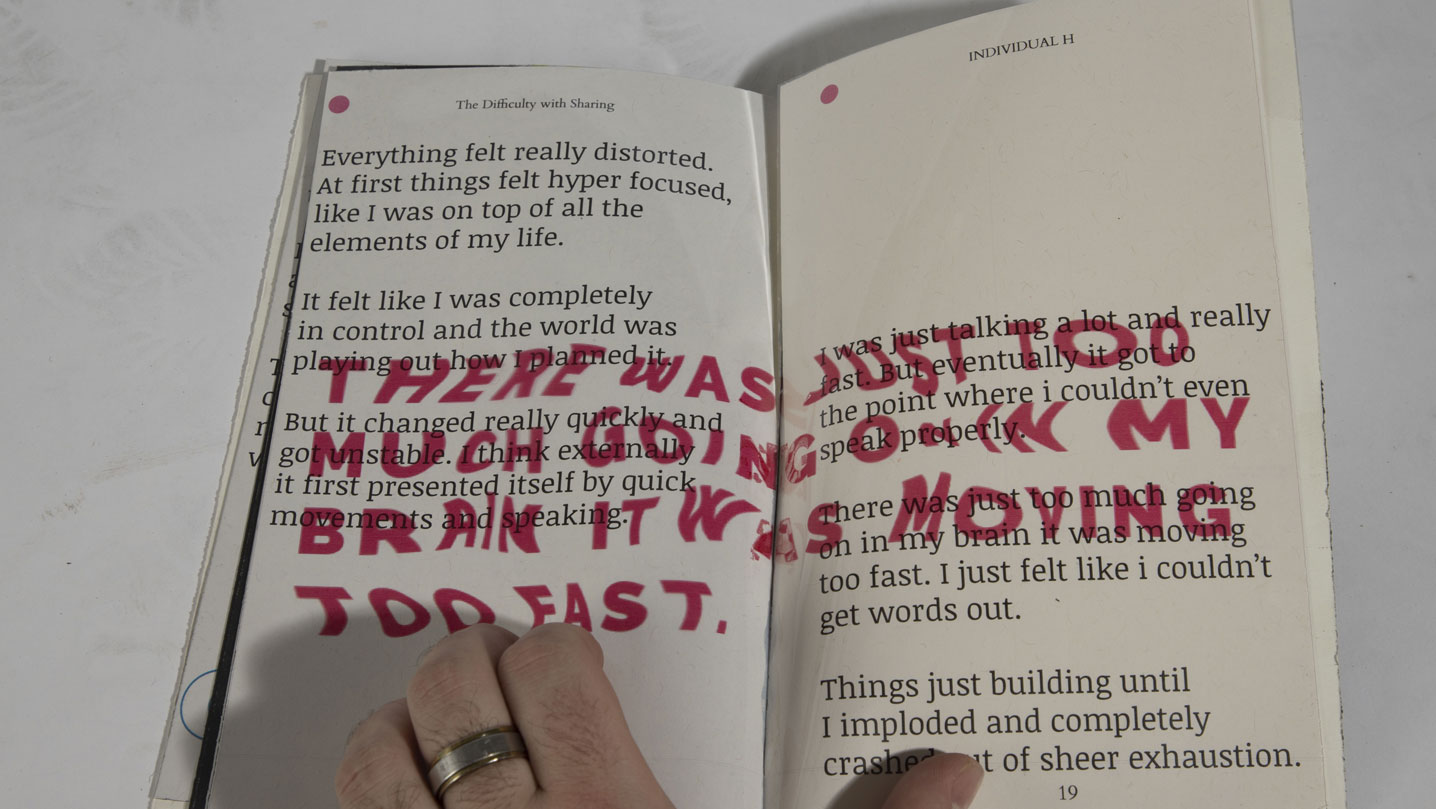 The Difficulty with Sharing
Everything felt really distorted.
At first things felt hyper focused,
like I was on top of all the
elements of my life.
It felt like I was completely
in control and the world was
playing out how I planned it.
But it changed really quickly and
got unstable. I think externally
it first presented itself by quick
movements and speaking.
INDIVIDUAL H
I was just talking a lot and really
fast. But eventually it got to
the point where i couldn't even
speak properly.
There was just too much going
on in my brain it was moving
too fast. I just felt like i couldn't
get words out.
Things just building until
I imploded and completely
of sheer exhaustion.
19
THERE WAS JUST TOO
MUCH GOING ON IN MY
BRAIN IT WAS MOVING
TOO FAST.